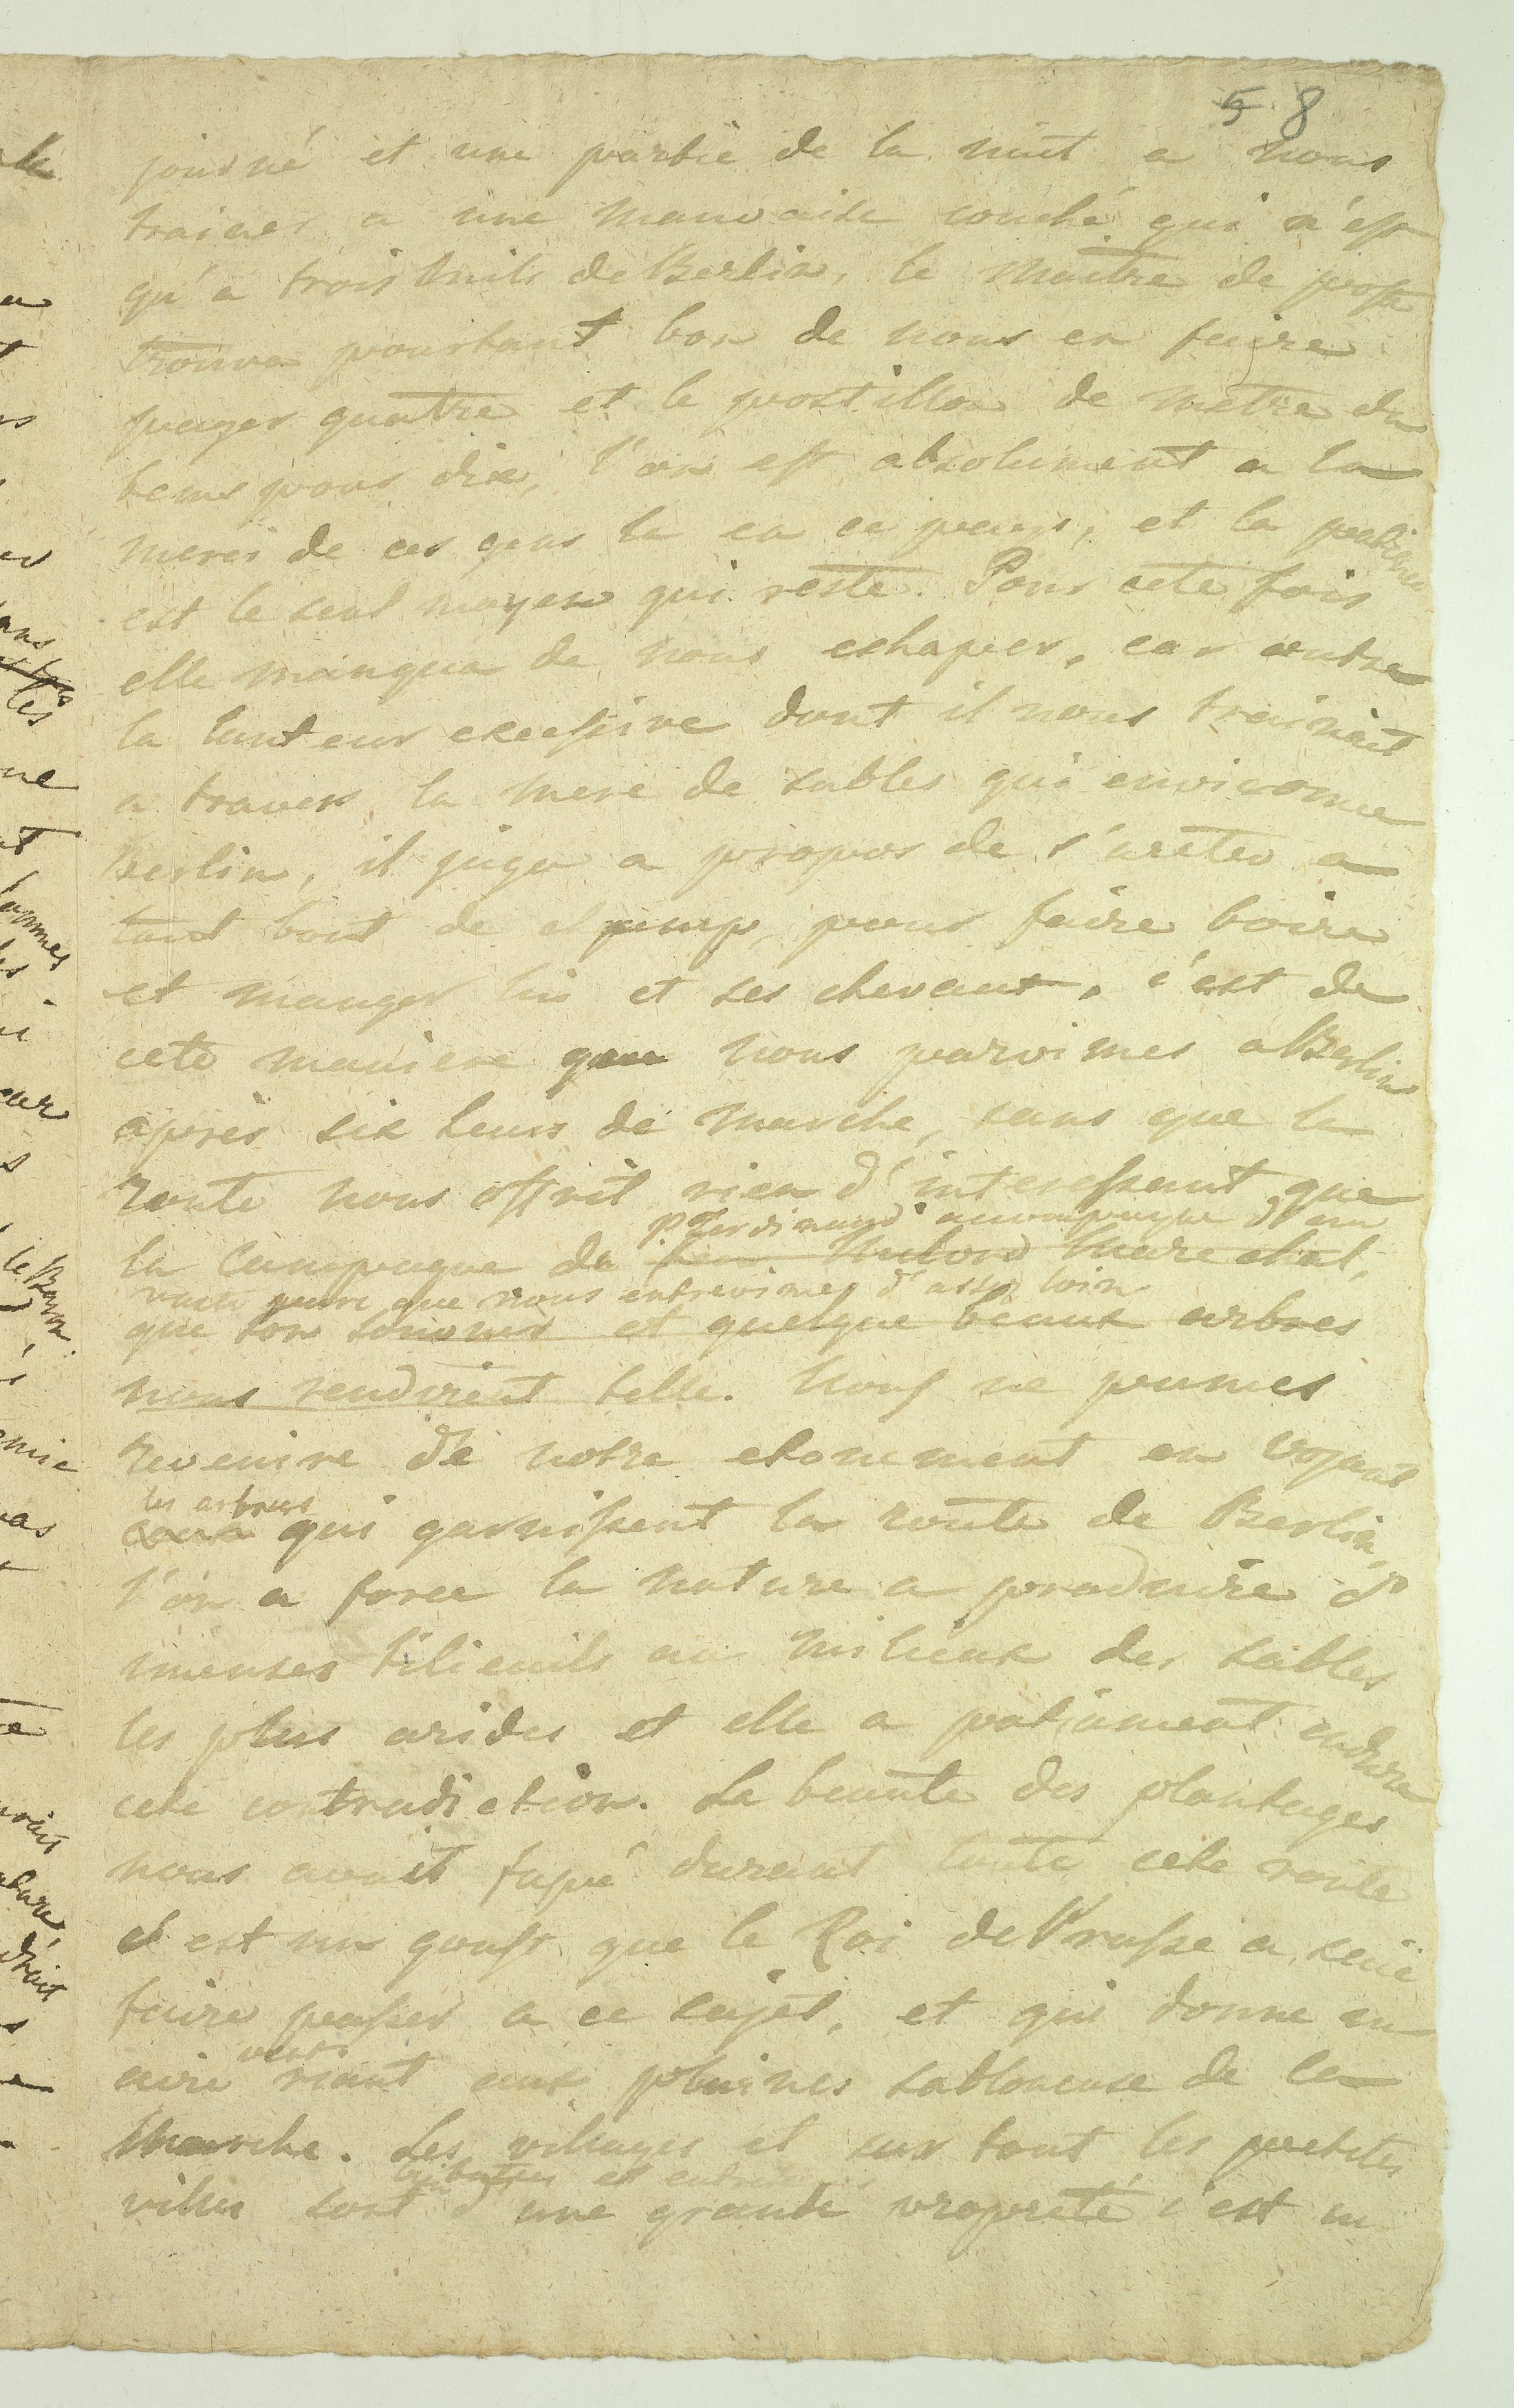 58
journé et une partie de la nuit a nous
trainer a une mauvaise couché qui n'est
qu'a trois mils de Berlin, le maitre de poste
trouva pourtant bon de nous en faire
payer quatre et le postillon de metre du
tems pour dix, l'on est absolument a la
merci de ces gens la en ce pays, et la patience
est le seul moyen qui reste. Pour cete fois
elle manqua de nous echaper, car outre
la lanteur excessive dont il nous trainait
a travers la mere de sables qui environne
Berlin, il jugea a propos de s'areter a
tout bout de champ pour faire boire
et manger lui et ses chevaux, c'est de
cete maniere que nous parvimes a Berlin
après six heurs de marche, sans que la
route nous offrit rien d'interessant que
P Ferdinand accompagné d'un
la Campagne du Milord Marechal,
vaste parc que nous entrevimes d'assez loin
que son souvenir et quelque beaux arbres
nous rendirent belle. Nous ne pumes
revenire de notre etonement en voyant
les arbres
ceux qui garnissent la route de Berlin,
l'on a forcé la nature a produire d'
imenses tilieuils au milieux des sables
les plus arides et elle a patiament enduré
cete contradiction. La beauté des plantages
nous avait frapé durant toute cete route
c'est un goust que le Roi de Prusse a seüe
faire passer a ce sujet, et qui donne un
aire riant aux plaines sabloneuse de la
Marche. Les villages et sur tout les petites
baties et
villes sont d'une grande propreté c'est un